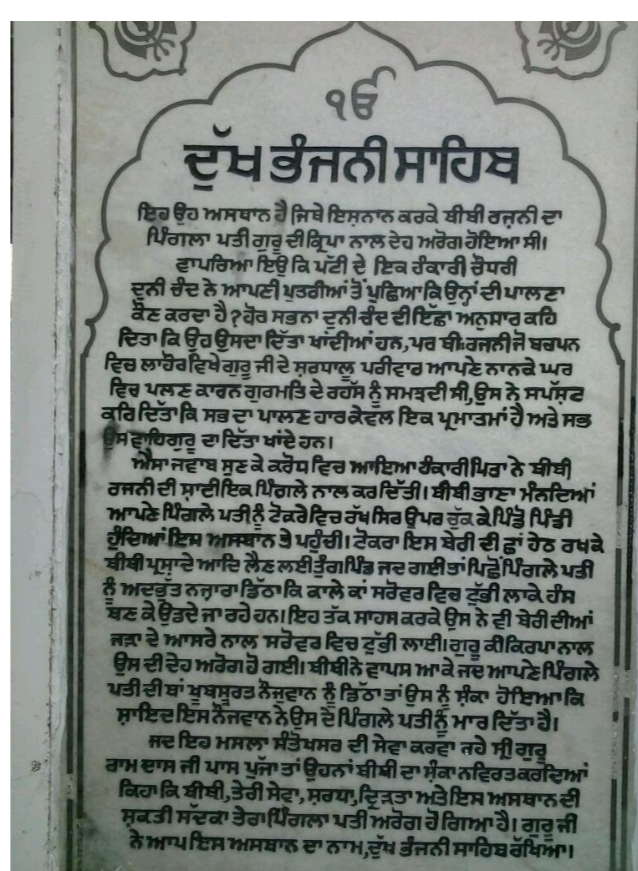 ੴ
ਦੁੱਖ ਭੰਜਨੀ ਸਾਹਿਬ
ਇਹ ਉਹ ਅਸਥਾਨ ਹੈ ਜਿਥੇ ਇਸ਼ਨਾਨ ਕਰਕੇ ਬੀਬੀ ਰਜ਼ਨੀ ਦਾ
ਪਿੰਗਲਾ ਪਤੀ ਗੁਰੂ ਦੀ ਕ੍ਰਿਪਾ ਨਾਲ ਦੇਹ ਅਰੋਗ ਹੋਇਆ ਸੀ।
ਵਾਪਰਿਆ ਇਉਂ ਕਿ ਪੱਟੀ ਦੇ ਇਕ ਹੰਕਾਰੀ ਚੌਧਰੀ
ਦੁਨੀ ਚੰਦ ਨੇ ਆਪਣੀ ਪੁਤਰੀਆਂ ਤੋਂ ਪੁਛਿਆ ਕਿ ਉਨ੍ਹਾਂ ਦੀ ਪਾਲਣਾ
ਕੌਣ ਕਰਦਾ ਹੈ? ਹੋਰ ਸਭਨਾ ਦੁਨੀ ਚੰਦ ਦੀ ਇੱਛਾ ਅਨੁਸਾਰ ਕਹਿ
ਦਿਤਾ ਕਿ ਉਹ ਉਸਦਾ ਦਿੱਤਾ ਖਾਂਦੀਆਂ ਹਨ, ਪਰ ਬੀ: ਰਜਨੀ ਜੋ ਬਚਪਨ
ਵਿਚ ਲਾਹੌਰ ਵਿਖੇ ਗੁਰੂ ਜੀ ਦੇ ਸ਼ਰਧਾਲੂ ਪਰੀਵਾਰ ਆਪਣੇ ਨਾਨਕੇ ਘਰ
ਵਿਚ ਪਲਣ ਕਾਰਨ ਗੁਰਮਤਿ ਦੇ ਰਹੱਸ ਨੂੰ ਸਮਝਦੀ ਸੀ, ਉਸ ਨੇ ਸਪੱਸ਼ਟ
ਕਰਿ ਦਿੱਤਾ ਕਿ ਸਭ ਦਾ ਪਾਲਣ ਹਾਰ ਕੇਵਲ ਇਕ ਪ੍ਰਮਾਤਮਾਂ ਹੈ ਅਤੇ ਸਭ
ਉਸ ਵਾਹਿਗੁਰੂ ਦਾ ਦਿੱਤਾ ਖਾਂਦੇ ਹਨ।
ਐਸਾ ਜਵਾਬ ਸੁਣ ਕੇ ਕਰੋਧ ਵਿਚ ਆਇਆ ਹੰਕਾਰੀ ਪਿਤਾ ਨੇ ਬੀਬੀ
ਰਜਨੀ ਦੀ ਸ਼ਾਦੀ ਇਕ ਪਿੰਗਲੇ ਨਾਲ ਕਰ ਦਿੱਤੀ। ਬੀਬੀ ਭਾਣਾ ਮੰਨਦਿਆਂ
ਆਪਣੇ ਪਿੰਗਲੇ ਪਤੀ ਨੂੰ ਟੋਕਰੇ ਵਿਚ ਰੱਖ ਸਿਰ ਉਪਰ ਚੁੱਕ ਕੇ ਪਿੰਡੋ ਪਿੰਡੀ
ਹੁੰਦਿਆਂ ਇਸ ਅਸਥਾਨ ਤੇ ਪਹੁੰਚੀ। ਟੋਕਰਾ ਇਸ ਬੇਰੀ ਦੀ ਛਾਂ ਹੇਠ ਰਖਕੇ
ਬੀਬੀ ਪ੍ਰਸ਼ਾਦੇ ਆਦਿ ਲੈਣ ਲਈ ਤੁੰਗ ਪਿੰਡ ਜਦ ਗਈ ਤਾਂ ਪਿਛੋਂ ਪਿੰਗਲੇ ਪਤੀ
ਨੂੰ ਅਦਭੁੱਤ ਨਜ਼ਾਰਾ ਡਿੱਠਾ ਕਿ ਕਾਲੇ ਕਾਂ ਸਰੋਵਰ ਵਿਚ ਟੁੱਭੀ ਲਾਕੇ ਹੰਸ
ਬਣ ਕੇ ਉਡਦੇ ਜਾ ਰਹੇ ਹਨ। ਇਹ ਤੱਕ ਸਾਹਸ ਕਰਕੇ ਉਸ ਨੇ ਵੀ ਬੇਰੀ ਦੀਆਂ
ਜੜਾ ਦੇ ਆਸਰੇ ਨਾਲ ਸਰੋਵਰ ਵਿਚ ਟੁੱਭੀ ਲਾਈ। ਗੁਰੂ ਕੀ ਕਿਰਪਾ ਨਾਲ
ਉਸ ਦੀ ਦੇਹ ਅਰੋਗ ਹੋ ਗਈ। ਬੀਬੀ ਨੇ ਵਾਪਸ ਆ ਕੇ ਜਦ ਆਪਣੇ ਪਿੰਗਲੇ
ਪਤੀ ਦੀ ਥਾਂ ਖੂਬਸੂਰਤ ਨੌਜੁਵਾਨ ਨੂੰ ਡਿੱਠਾ ਤਾਂ ਉਸ ਨੂੰ ਸ਼ੰਕਾ ਹੋਇਆ ਕਿ
ਸ਼ਾਇਦ ਇਸ ਨੌਜਵਾਨ ਨੇ ਉਸ ਦੇ ਪਿੰਗਲੇ ਪਤੀ ਨੂੰ ਮਾਰ ਦਿੱਤਾ ਹੈ।
ਜਦ ਇਹ ਮਸਲਾ ਸੰਤੋਖਸਰ ਦੀ ਸੇਵਾ ਕਰਵਾ ਰਹੇ ਸ੍ਰੀ ਗੁਰੂ
ਰਾਮ ਦਾਸ ਜੀ ਪਾਸ ਪੁੱਜਾ ਤਾਂ ਉਹਨਾਂ ਬੀਬੀ ਦਾ ਸ਼ੰਕਾ ਨਵਿਰਤ ਕਰਦਿਆਂ
ਕਿਹਾ ਕਿ ਬੀਬੀ, ਤੇਰੀ ਸੇਵਾ, ਸ਼ਰਧਾ, ਦ੍ਰਿੜਤਾ ਅਤੇ ਇਸ ਅਸਥਾਨ ਦੀ
ਸ਼ਕਤੀ ਸੱਦਕਾ ਤੇਰਾ ਪਿੰਗਲਾ ਪਤੀ ਅਰੋਗ ਹੋ ਗਿਆ ਹੈ। ਗੁਰੂ ਜੀ
ਨੇ ਆਪ ਇਸ ਅਸਥਾਨ ਦਾ ਨਾਮ, ਦੁੱਖ ਭੰਜਨੀ ਸਾਹਿਬ ਰੱਖਿਆ।